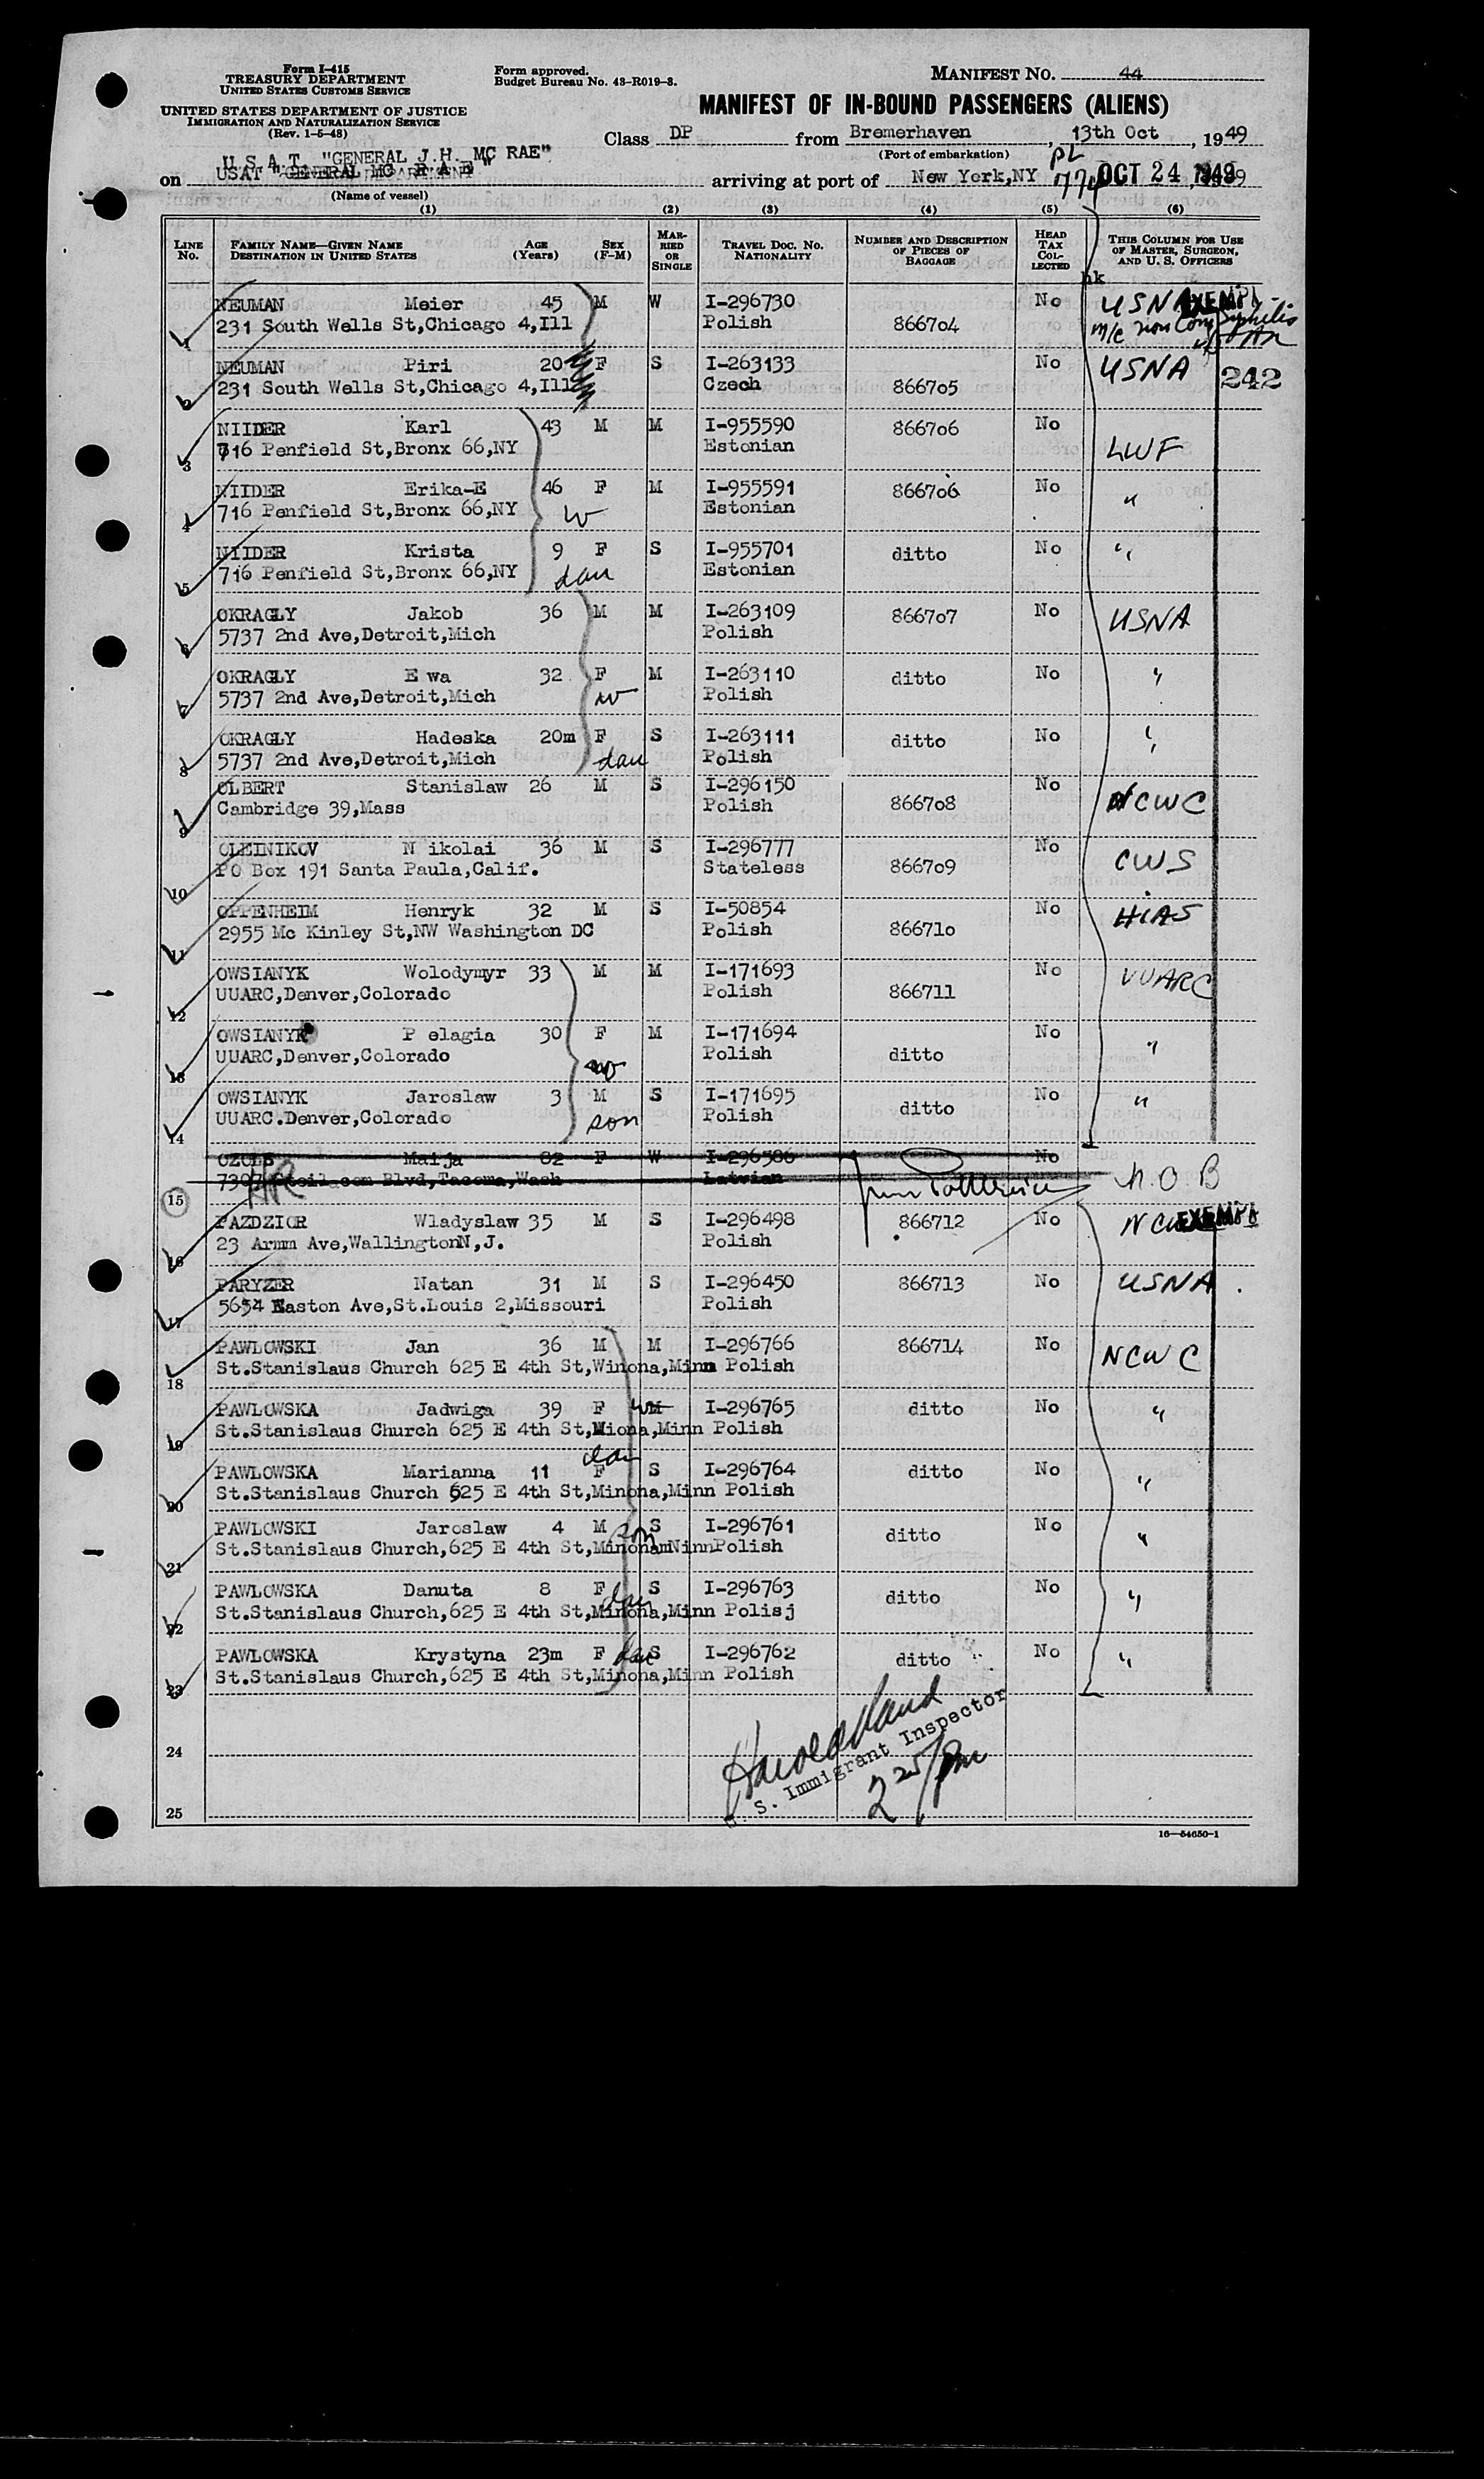 Form I-415
TREASURY DEPARTMENT
UNITED STATES CUSTOMS SERVICE
UNITED STATES DEPARTMENT OF JUSTICE
IMMIGRATION AND NATURALIZATION SERVICE
(Rev. 1-5-48)
Form approved.
Budget Bureau No. 43-R019-3.
MANIFEST NO. 44
MANIFEST OF IN-BOUND PASSENGERS (ALIENS)
Class DP from Bremerhaven, 13th Oct, 1949
(Port of embarkation)
U.S.A.T. "GENERAL J.H. MC RAE"
on USAT "GENERAL MC RAE" arriving at port of New York,NY OCT 24 1949
(Name of vessel)
(1) (2) (3) (4) (5) (6)
LINE No. FAMILY NAME—GIVEN NAME DESTINATION IN UNITED STATES AGE (Years) SEX (F-M) MARRIED OR SINGLE TRAVEL DOC. NO. NATIONALITY NUMBER AND DESCRIPTION OF PIECES OF BAGGAGE HEAD TAX COLLECTED THIS COLUMN FOR USE OF MASTER, SURGEON, AND U. S. OFFICERS
1 NEUMAN Meier 45 M W I-296730 No USNA EXEMPT
231 South Wells St,Chicago 4,Ill Polish 866704
2 NEUMAN Piri 20 F S I-263133 No USNA 242
231 South Wells St,Chicago 4,Ill Czech 866705
3 NIIDER Karl 43 M M I-955590 866706 No
716 Penfield St,Bronx 66,NY Estonian LWF
4 NIIDER Erika-E 46 F M I-955591 866706 No "
716 Penfield St,Bronx 66,NY W Estonian
5 NIIDER Krista 9 F S I-955701 ditto No "
716 Penfield St,Bronx 66,NY dau Estonian
6 OKRAGLY Jakob 36 M M I-263109 866707 No USNA
5737 2nd Ave,Detroit,Mich Polish
7 OKRAGLY E wa 32 F M I-263110 ditto No "
5737 2nd Ave,Detroit,Mich w Polish
8 OKRAGLY Hadeska 20m F S I-263111 ditto No "
5737 2nd Ave,Detroit,Mich dau Polish
9 OLBERT Stanislaw 26 M S I-296150 No
Cambridge 39,Mass Polish 866708 NCWC
10 OLEINIKOV N ikolai 36 M S I-296777 No CWS
PO Box 191 Santa Paula,Calif. Stateless 866709
11 OPPENHEIM Henryk 32 M S I-50854 No HIAS
2955 Mc Kinley St,NW Washington DC Polish 866710
12 OWSIANYK Wolodymyr 33 M M I-171693 No UUARC
UUARC,Denver,Colorado Polish 866711
13 OWSIANYK P elagia 30 F M I-171694 No "
UUARC,Denver,Colorado w Polish ditto
14 OWSIANYK Jaroslaw 3 M S I-171695 No "
UUARC.Denver,Colorado son Polish ditto
15 OZOLS Maija 82 F W I-296586 No N.O.B
Blvd,Tacoma,Wash Latvian
16 PAZDZIOR Wladyslaw 35 M S I-296498 866712 No EXEMPT
23 Armm Ave,WallingtonN,J. Polish
17 PARYZER Natan 31 M S I-296450 866713 No USNA
5654 Easton Ave,St.Louis 2,Missouri Polish
18 PAWLOWSKI Jan 36 M M I-296766 866714 No NCWC
St.Stanislaus Church 625 E 4th St,Winona,Minn Polish
19 PAWLOWSKA Jadwiga 39 F M I-296765 ditto No "
St.Stanislaus Church 625 E 4th St,Miona,Minn Polish
20 PAWLOWSKA Marianna 11 dau F S I-296764 ditto No "
St.Stanislaus Church 625 E 4th St,Minona,Minn Polish
21 PAWLOWSKI Jaroslaw 4 M son S I-296761 ditto No "
St.Stanislaus Church,625 E 4th St,MinonamNinnPolish
22 PAWLOWSKA Danuta 8 F dau S I-296763 ditto No "
St.Stanislaus Church,625 E 4th St,Minona,Minn Polisj
23 PAWLOWSKA Krystyna 23m F dau S I-296762 ditto No "
St.Stanislaus Church,625 E 4th St,Minona,Minn Polish
24
S. Immigrant Inspector
25
16—54650-1